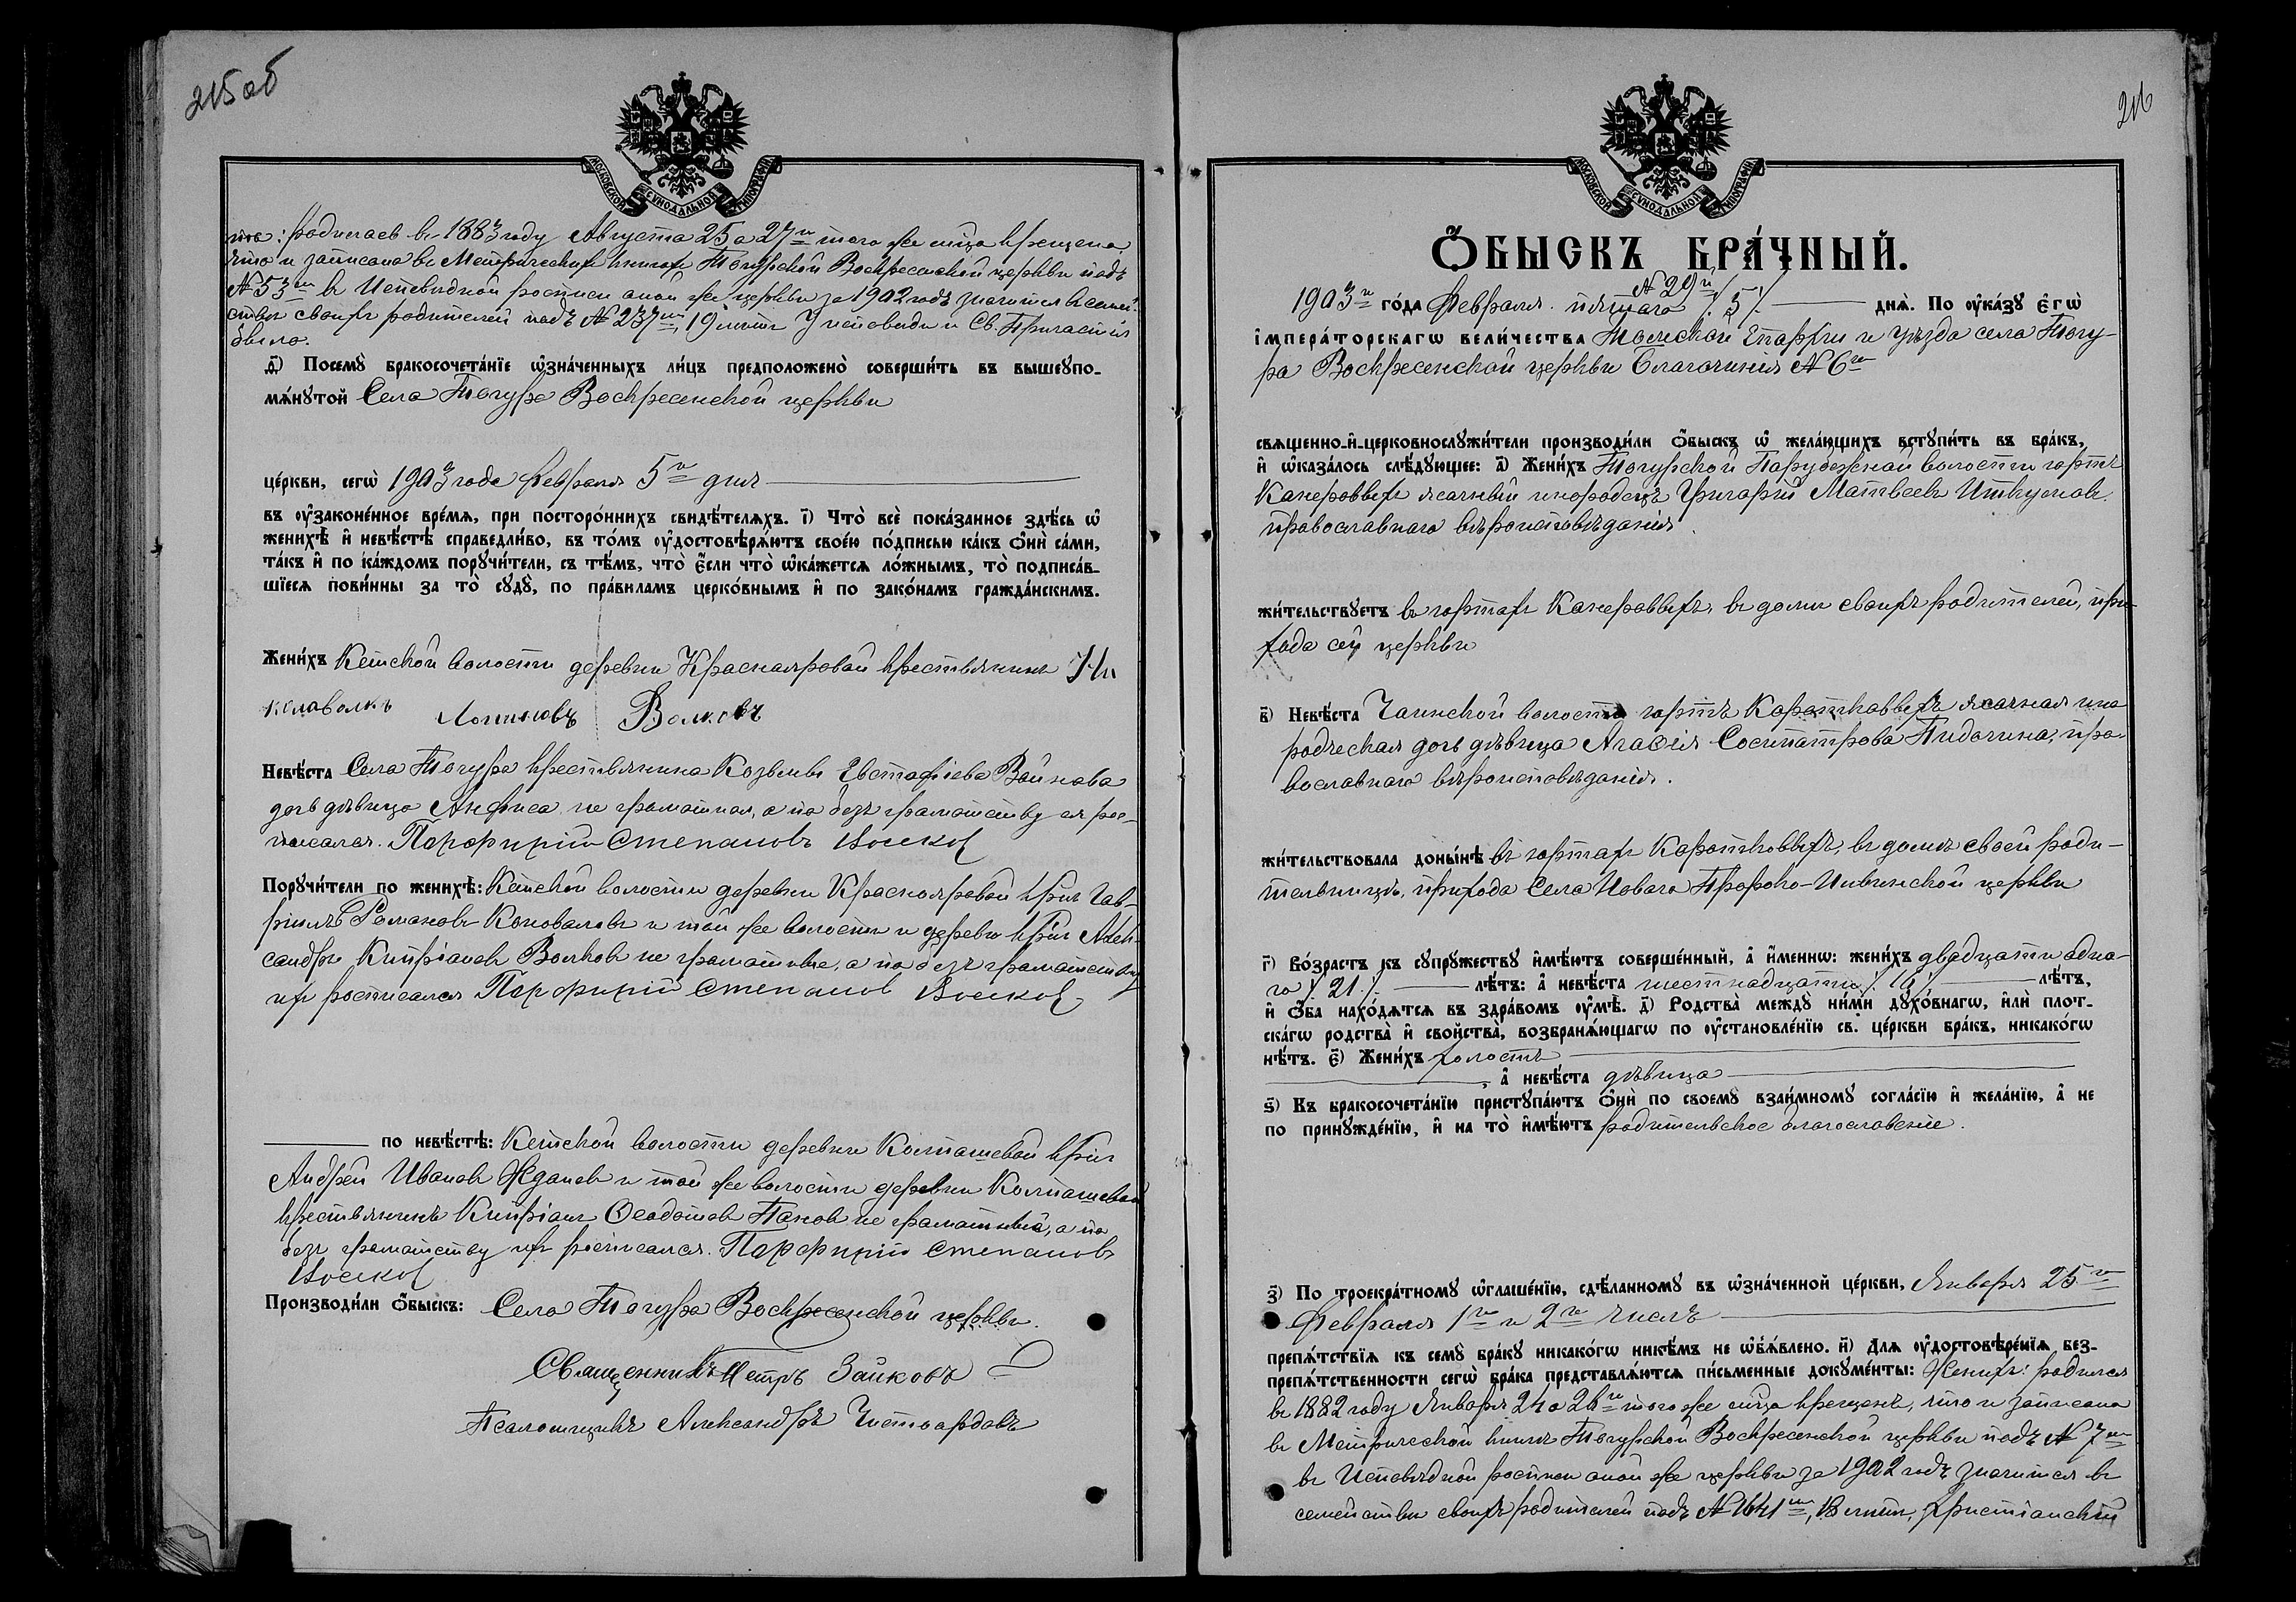 215 об
МОСКОВСКОЙ СУНОДАЛЬНОЙ ТИПОГРАФІИ
родилась въ 1883 году Августа 25 а 27го того же м҃ца крещена
что и записана въ Метрическихъ книгахъ Тогурской Воскресенской церкви подъ
№ 53мъ въ Исповѣдной росписи оной же церкви за 1902 годъ значится въ семей-
ствѣ своихъ родителей подъ № 237мъ, 19 лѣтъ У исповѣди и Св. Причастія
была.
д҃) Посемꙋ̀ бракосочета́нїе ѡ҆зна́ченныхъ ли́цъ предположено̀ соверши́ть въ вышеꙋпо-
мѧ́нꙋтой Села Тогура Воскресенской церкви
це́ркви, сегѡ̀ 1903 года Февраля 5го дня
въ ᲂу҆законе́нное вре́мѧ, при посторо́ннихъ свидѣ́телѧхъ. і҃) Что̀ всѐ пока́занное здѣ́сь ѡ҆
женихѣ̀ и҆ невѣ́стѣ справедли́во, въ то́мъ ᲂу҆достовѣрѧ́ютъ свое́ю по́дписью ка́къ ѻ҆нѝ са́ми,
та́къ и҆ по ка́ждомъ порꙋчи́тели, съ тѣ́мъ, что̀ є҆́сли что̀ ѡ҆ка́жетсѧ ло́жнымъ, то̀ подписа́в-
шїесѧ пови́нны за то̀ сꙋдꙋ̀, по пра́виламъ церко́внымъ и҆ по зако́намъ гражда́нскимъ.
Жени́хъ Кетской волости деревни Краснояровой крестьянинъ Ни
колаволкъ Логиновъ Волковъ
Невѣ́ста Села Тогура крестьянина Козьмы Евстафіева Войнова
дочь дѣвица Анфиса не грамотная, а по безъ грамотству ея рос-
писался. Порфирій Степановъ
Порꙋчи́тели по женихѣ̀: Кетской волости деревни Краснояровой кр҃нъ Гав-
ріилъ Романовъ Коноваловъ и той же волости и деревни кр҃нъ Алек-
сандръ Кипріановъ Волковъ не грамотные, а по безъ грамотству
ихъ росписался Порфирій Степанов
по невѣ́стѣ: Кетской волости деревни Колпашевой кр҃нъ
Андрей Ивановъ Ждановъ и той же волости деревни Колпашевой
крестьянинъ Кипріанъ Ѳеодотовъ Пановъ не грамотный, а по
безъ грамотству ихъ росписался. Порфирій Степановъ
Производи́ли ѻ҆́быскъ: Села Тогура Воскресенской церкви.
Священникъ Петръ Зайковъ
Псаломщикъ Александръ Чистосердовъ
216
МОСКОВСКОЙ СУНОДАЛЬНОЙ ТИПОГРАФІИ
Ѻ҆́БЫСКЪ БРА́ЧНЫЙ.
№ 20й
1903го го́да Февраля пятаго /5/ днѧ̀. По ᲂу҆ка́зꙋ є҆гѡ̀
і҆мпера́торскагѡ вели́чества Томской Епархіи и уѣзда села Тогу-
ра Воскресенской церкви Благочинія № 6го
свѧще́нно-и҆-церковнослꙋжи́тели производи́ли ѻ҆́быскъ ѡ҆ жела́ющихъ встꙋпи́ть въ бра́къ,
и҆ ѡ҆каза́лось слѣ́дꙋющее: а҃) Жени́хъ Тогурской Порубежной волости юртъ
Канеровыхъ ясачный инородецъ Григорій Матвѣевъ Иткуновъ
православнаго вѣроисповѣданія.
жи́тельствꙋетъ въ юртахъ Канеровыхъ, въ домѣ своихъ родителей, при-
хода сей церкви
в҃) Невѣ́ста Чаинской волости юртъ Каратковыхъ ясачная ино-
родческая дочь дѣвица Агаѳія Сосипатрова Пидогина, пра-
вославнаго вѣроисповѣданія.
жи́тельствовала доны́нѣ въ юртахъ Каратковыхъ, въ домѣ своей роди-
тельницы, прихода Села Новаго Пророко-Ильинской церкви
г҃) Во́зрастъ къ сꙋпрꙋ́жествꙋ и҆мѣ́ютъ соверше́нный, а҆ и҆́меннѡ: жени́хъ двадцати одно-
го /21/ лѣ́тъ: а҆ невѣ́ста шестнадцати /16/ лѣ́тъ,
и҆ ѻ҆́ба нахо́дѧтсѧ въ здра́вомъ ᲂу҆мѣ̀. д҃) Родства̀ междꙋ̀ ни́ми дꙋхо́внагѡ, и҆лѝ плот-
ска́гѡ родства̀ и҆ свойства̀, возбранѧ́ющагѡ по ᲂу҆становле́нїю св. це́ркви бра́къ, никако́гѡ
нѣ́тъ. є҃) Жени́хъ холостъ
, а҆ невѣ́ста дѣвица
ѕ҃) Къ бракосочета́нїю пристꙋпа́ютъ ѻ҆нѝ по своемꙋ̀ взаи́мномꙋ согла́сїю и҆ жела́нїю, а҆ не
по принꙋжде́нїю, и҆ на то̀ и҆мѣ́ютъ родительское благословеніе.
з҃) По троекра́тномꙋ ѡ҆глаше́нїю, сдѣ́ланномꙋ въ ѡ҆зна́ченной це́ркви, Января 25го
Февраля 1го и 2го чиселъ
препѧ́тствїѧ къ семꙋ̀ бра́кꙋ никако́гѡ никѣ́мъ не ѡ҆б̾ѧ́влено. и҃) Длѧ ᲂу҆достовѣре́нїѧ без-
препѧ́тственности сегѡ̀ бра́ка представлѧ́ютсѧ пи́сьменные докꙋме́нты: Женихъ: родился
въ 1882 году Января 24 а 26го того же м҃ца крещенъ, что и записано
въ Метрической книгѣ Тогурской Воскресенской церкви подъ № 7мъ
въ Исповѣдной росписи оной же церкви за 1902 годъ значится въ
семействѣ своихъ родителей подъ № 1641мъ, 18 лѣтъ, христіанскій